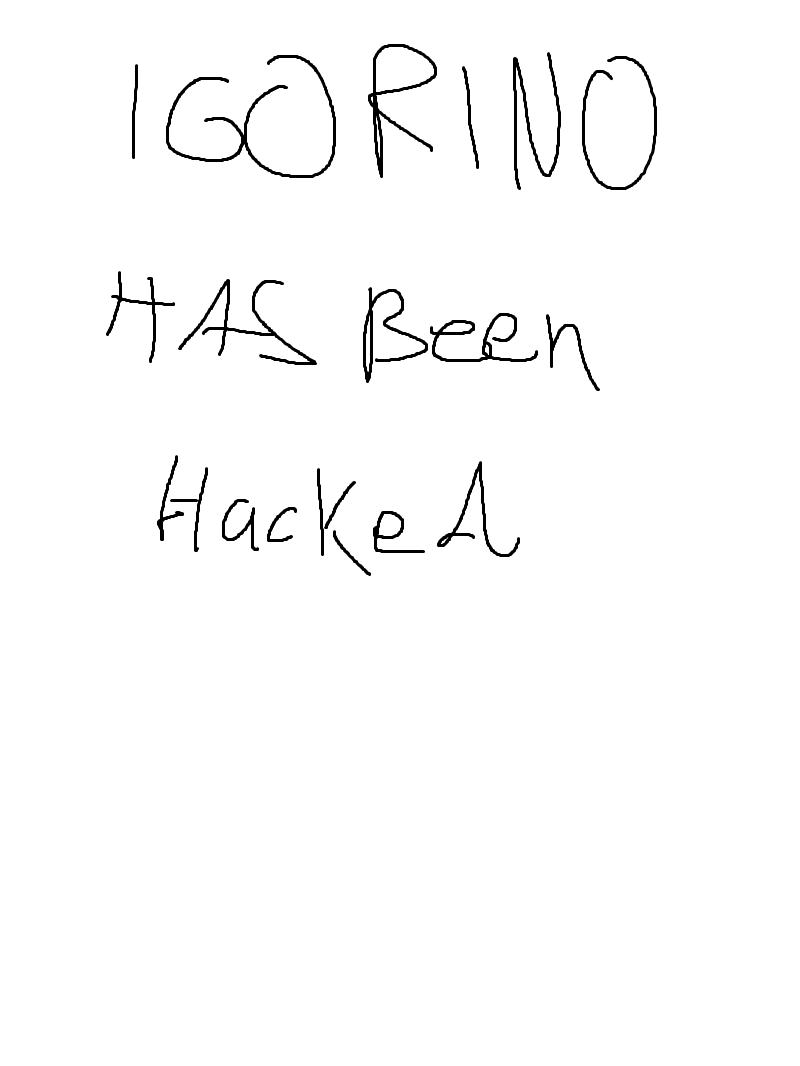 IGORINO
HAS Been
Hacked